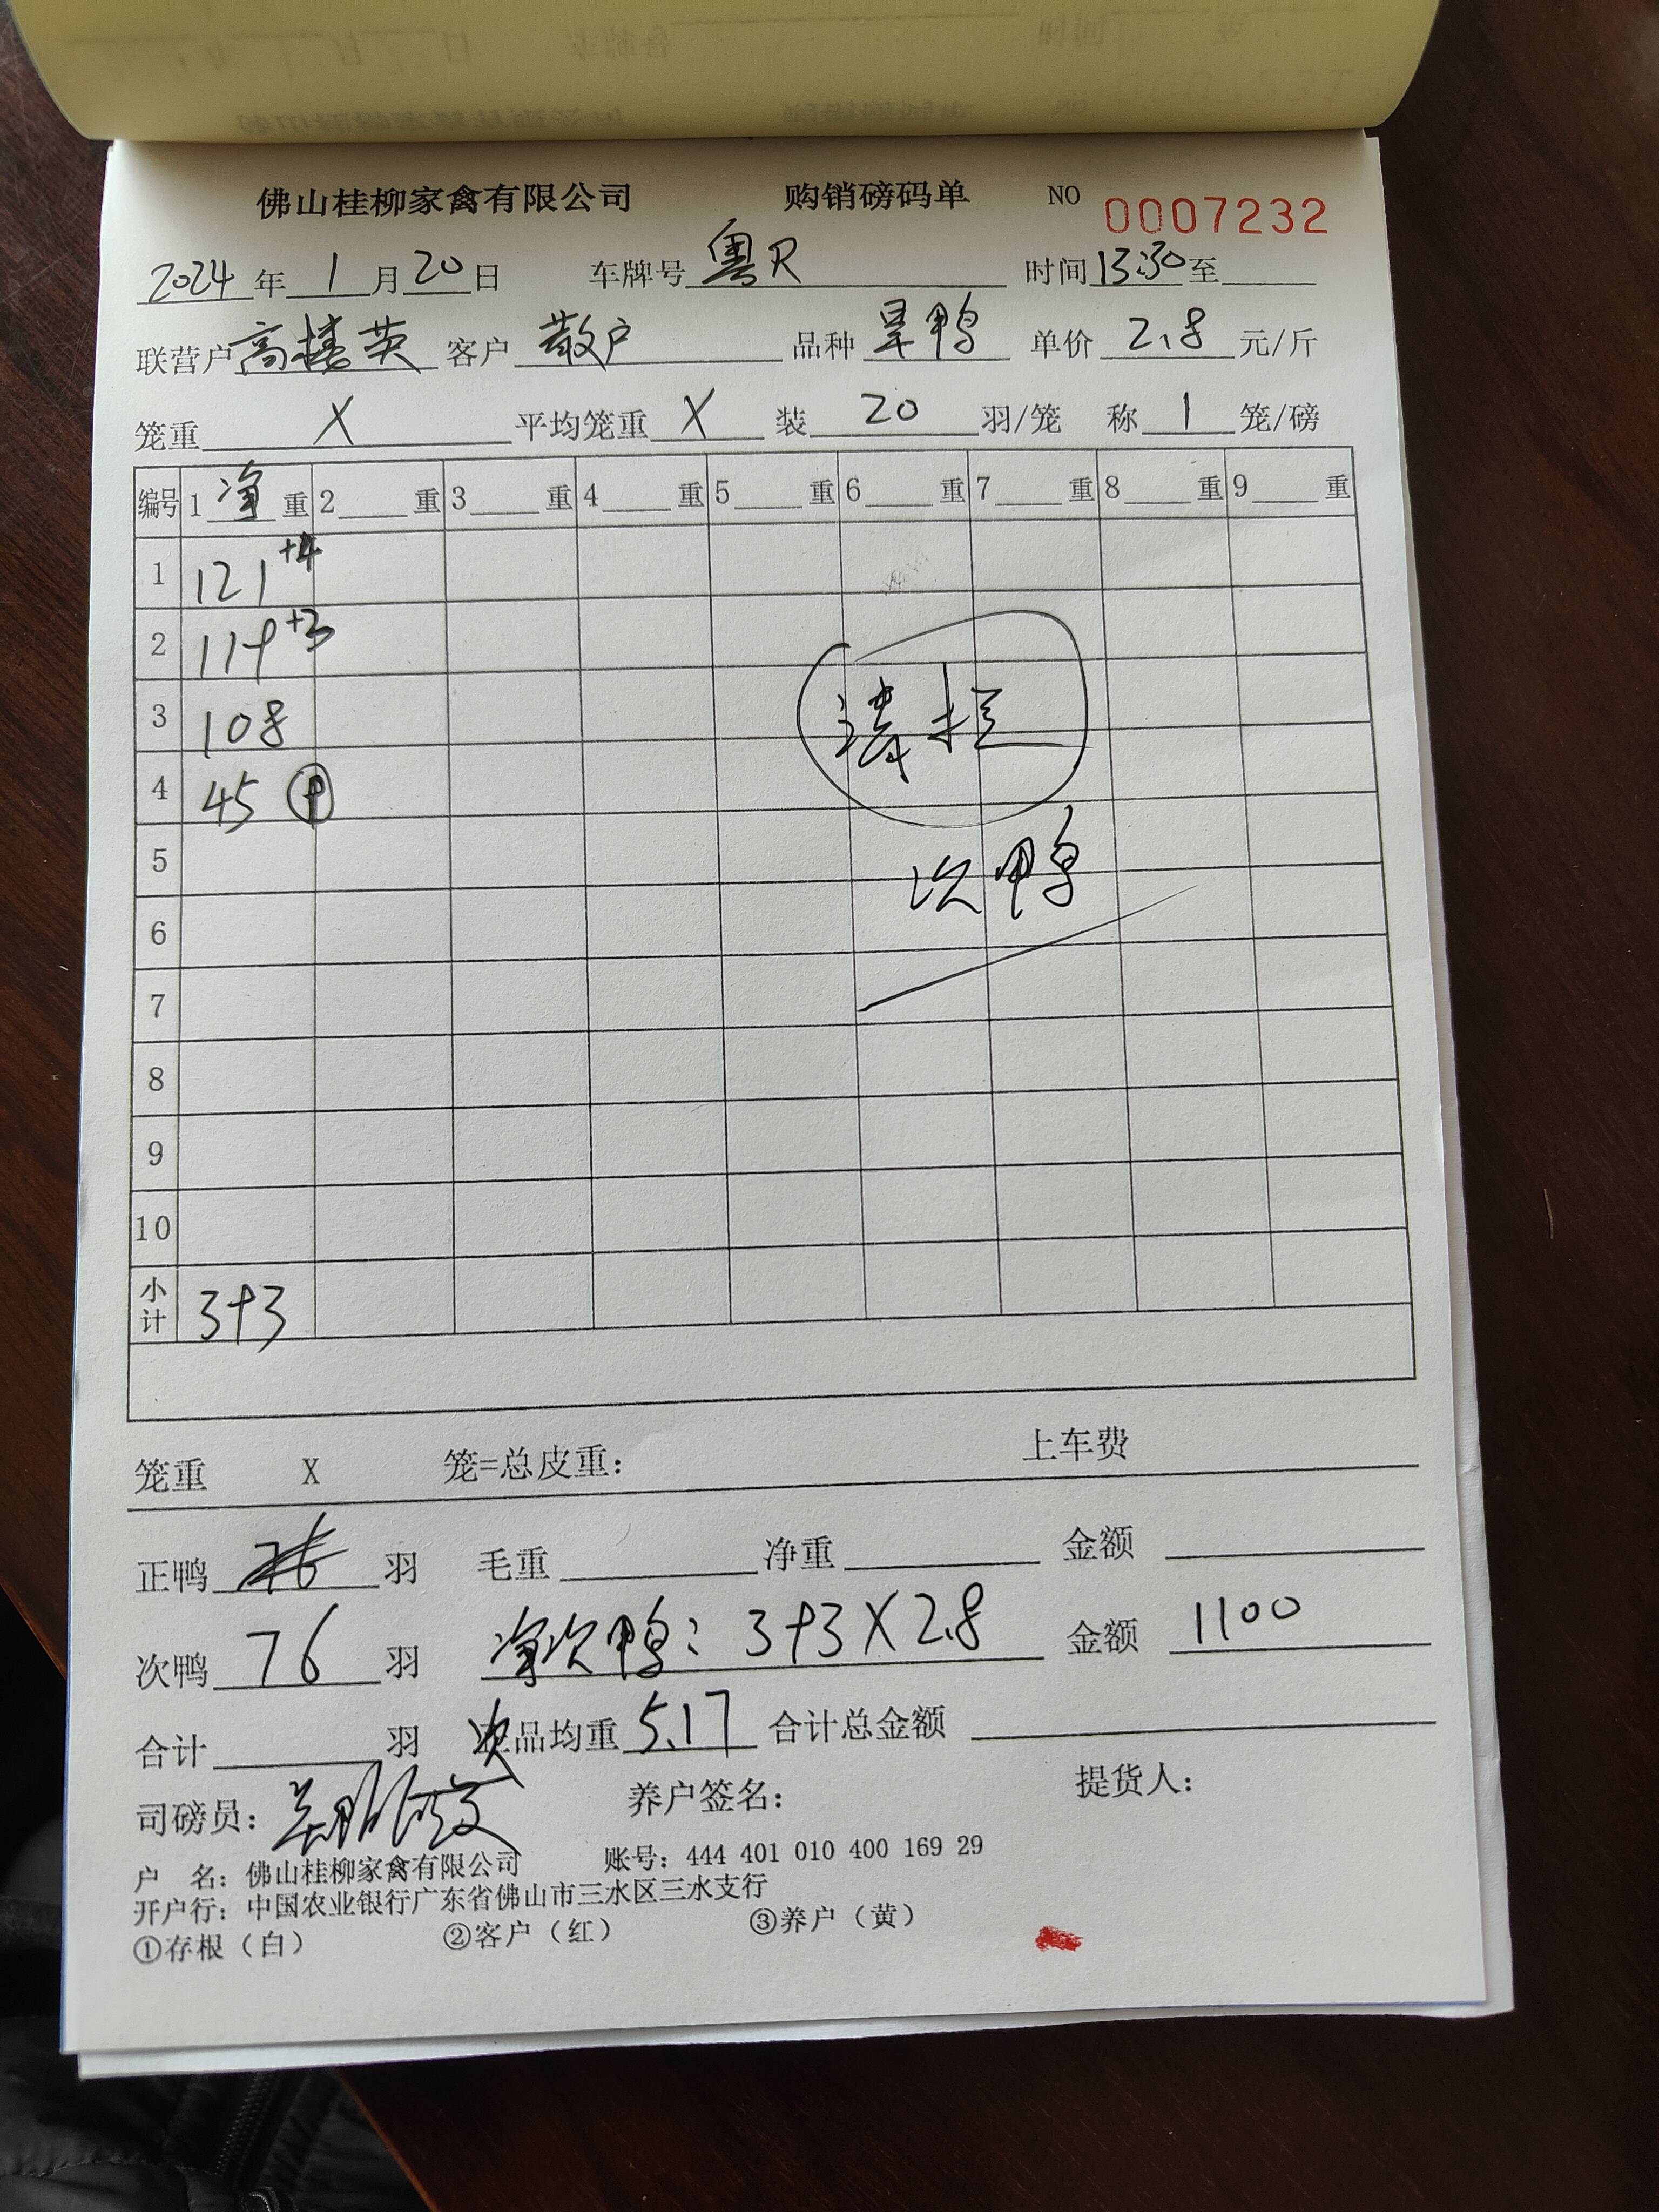 佛山桂柳家禽有限公司 购销磅码单 NO 0007232
2024年1月20日 车牌号 粤R 时间 13:30 至
联营户 高 英 客户 散户 品种 旱鸭 单价 2.8 元/斤
笼重 X 平均笼重 X 装 20 羽/笼 称 1 笼/磅
编号 1 净 重 2 重 3 重 4 重 5 重 6 重 7 重 8 重 9 重
1 121 +4
2 119 +3
3 108
4 45
5
6
7
8
9
10
小计 393
次鸭
笼重 X 笼=总皮重: 上车费
正鸭 76 羽 毛重 净重 金额
次鸭 76 羽 净次鸭: 393X2.8 金额 1100
合计 羽 次品均重 5.17 合计总金额
司磅员: 养户签名: 提货人:
户 名: 佛山桂柳家禽有限公司 账号: 444 401 010 400 169 29
开户行: 中国农业银行广东省佛山市三水区三水支行
①存根(白) ②客户(红) ③养户(黄)